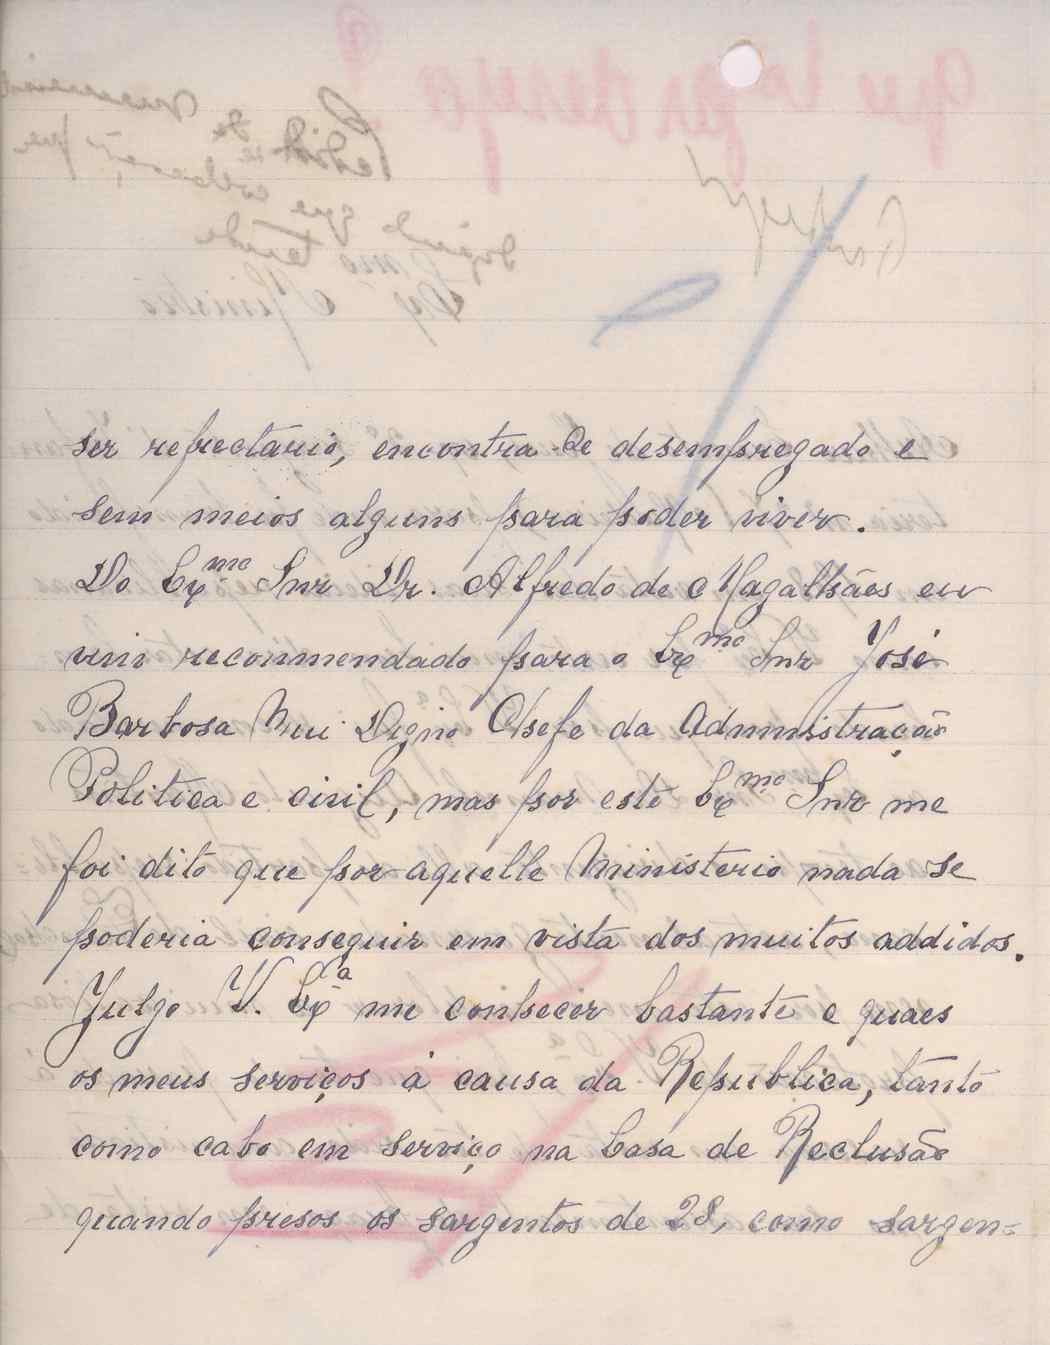 ser refractario, encontra-se desempregado e
sem meios alguns para poder viver.
Do Exmo Snr Dr. Alfredo de Magalhães eu
vim recommendado para o Exmo Snr José
Barbosa Mui Digno Chefe da Administração
Politica e civil, mas por este Exmo Snr me
foi dito que por aquelle Ministerio nada se
poderia conseguir em vista dos muitos addidos.
Julgo V. Exa me conhecer bastante e quaes
os meus serviços á causa da Republica, tanto
como cabo em serviço na Casa de Reclusão
quando presos os sargentos de 28, como sargen=